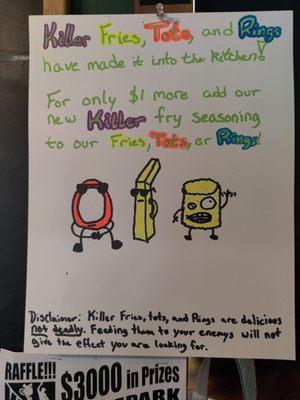 Killer Fries, Tots, and Rings
have made it into the kitchen!
For only $1 more add our
new Killer fry seasoning
to our Fries, Tots, or Rings!
Disclaimer: Killer Fries, tots, and Rings are delicious
not deadly. Feeding them to your enemys will not
give the effect you are looking for.
RAFFLE!!!
$3000 in Prizes
PARK